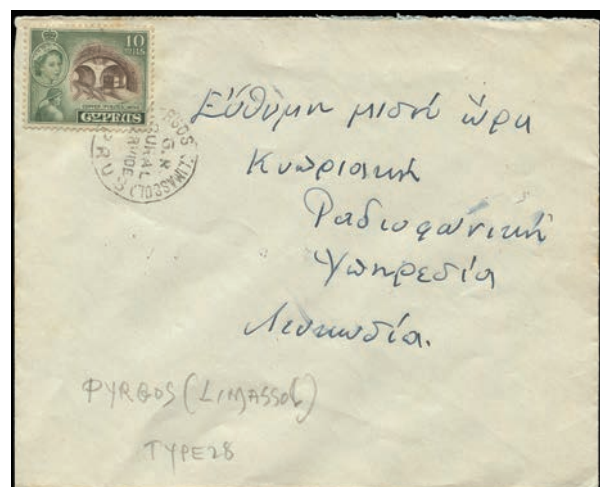 10
MILS
CYPRUS
PYRGOS (LIMASSOL)
G.R.
RURAL
SERVICE
CYPRUS
Εὔθυμη μισή ὥρα
Κυπριακή
Ραδιοφωνική
Ὑπηρεσία
Λευκωσία.
PYRGOS (LIMASSOL)
TYPE 28